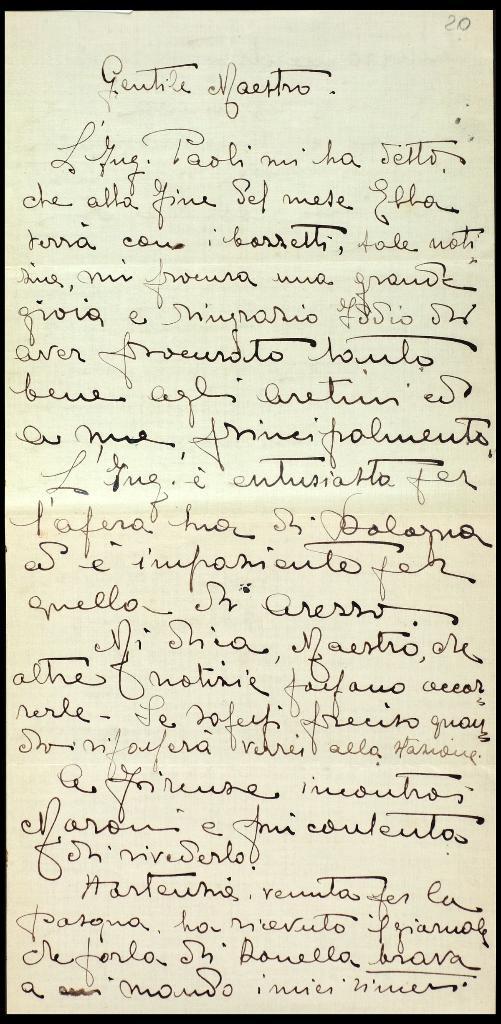 20
Gentile Maestro.
L'Ing. Paoli mi ha detto,
che alla fine del mese Ella
verrà con i bozzetti, tale noti
zia, mi procura una grande
gioia e ringrazio Iddio di
aver procurato tanto
bene agli aretini ed
a me, principalmente,
L'Ing. è entusiasta per
l'opera sua di Bologna
ed è impaziente per
quella di Arezzo
Mi dica, Maestro, che
altre notizie possano occor=
rerle - Se sapessi preciso quan=
do ripasserà verrei alla stazione.
A Firenze incontrai
Maroni e fui contenta
di rivederlo.
Hortensia, venuta per la
Pasqua, ha ricevuto il giornale
che parla di Donella brava
a mando i miei